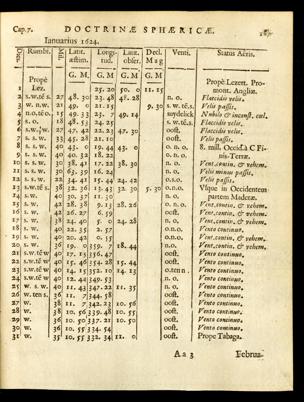 Cap.7. DOCTRINÆ SPHÆRICÆ. 187
Ianuarius 1624.
Dies. Rumbi. Mil. Latit. æstim. Longitud. Latit. obser. Decl. Mag Venti. Status Aëris.
G. M G. M G. M G. M
Propè Lez. Propè Lezert. Promont. Angliæ.
1 25. 20 50. 0 11. 15
2 s.w.tē s. 27 48. 23. 48 48. 28 n. o. Flaccidis velis.
3 w. n.w. 21 49. 0 21. 15 9. 30 s. w. tē.s. Flaccidis velis.
4 n.o.tē o. 49. 33 23. 7 49. 14 suydelick
5 s. o. 18 48. 53 24. 25 s. w. tē.s. Flaccidis velis.
6 s.w. w. 27 47. 42 22. 23 47. 30 oost. Flaccidis velis.
7 s.w. 33 45. 28 21. 10 oost. Velis passis.
8 s. w. 40 43. 0 19. 44 43. 0 o. n. o. 8. mill. Occid. à C. Finis-Terræ.
9 s. w. 40 40. 32 18. 22 o. n. o.
10 s. w. 30 38. 41 17. 22 38. 30 n. o. Vent. contin. & vehem.
11 s. w. 30 n. o. Velis minus passis.
12 s. w. 22 34. 41 15. 44 24. 42 o.s.o. Velis passis.
13 s.w.tē s. 38 32. 36 32. 30 5. 30 o.n.o. Vsque in Occidentem
14 s. w. 40 30. 37 11. 30 n. o. partem Maderæ.
15 s. w. 42 28. 38 9. 13 28. 26 n. o. Vent. contin. & vehem.
16 s. w. 42 26. 27 6. 59 oost. Vent. contin. & vehem.
17 s. w. 38 24. 40 5. 0 24. 28 o. n. o. Vent. contin. & vehem.
18 s. w. 40 22. 35 2. 57 o. n. o. Vento continuo.
19 s. w. 40 20. 42 0. 55 o. n. o. Vent. contin. & vehem.
20 s. w. 36 19. 0 359. 7 18. 44 o. n. o. Vent. contin. & vehem.
21 s.w.tē w 40 17. 15 356. 47 oost. Vento continuo.
22 s.w.tē w 40 15. 46 354. 28 15. 44 oost. Vento continuo.
23 s.w.tē w 40 14. 15 352. 10 14. 13 o.ten n. Vento continuo.
24 s.w.tē w 40 12. 44 349. 53 oost. Vento continuo.
25 w. s. w. 40 11. 43 347. 22 11. 35 oost. Vento continuo.
26 w. ten s. 36 11. 7 344. 58 oost. Vento continuo.
27 w. 38 11. 7 342. 23 10. 56 oost. Vento continuo.
28 w. 38 10. 56 339. 48 10. 55 oost. Vento continuo.
29 w. 36 10. 50 337. 21 10. 50 oost. Vento continuo.
30 w. 10. 55 334. 54 oost. Vento continuo.
31 w. 35 10. 55 332. 34 11. 0 oost. Prope Tabaga.
Aa 3 Februa-